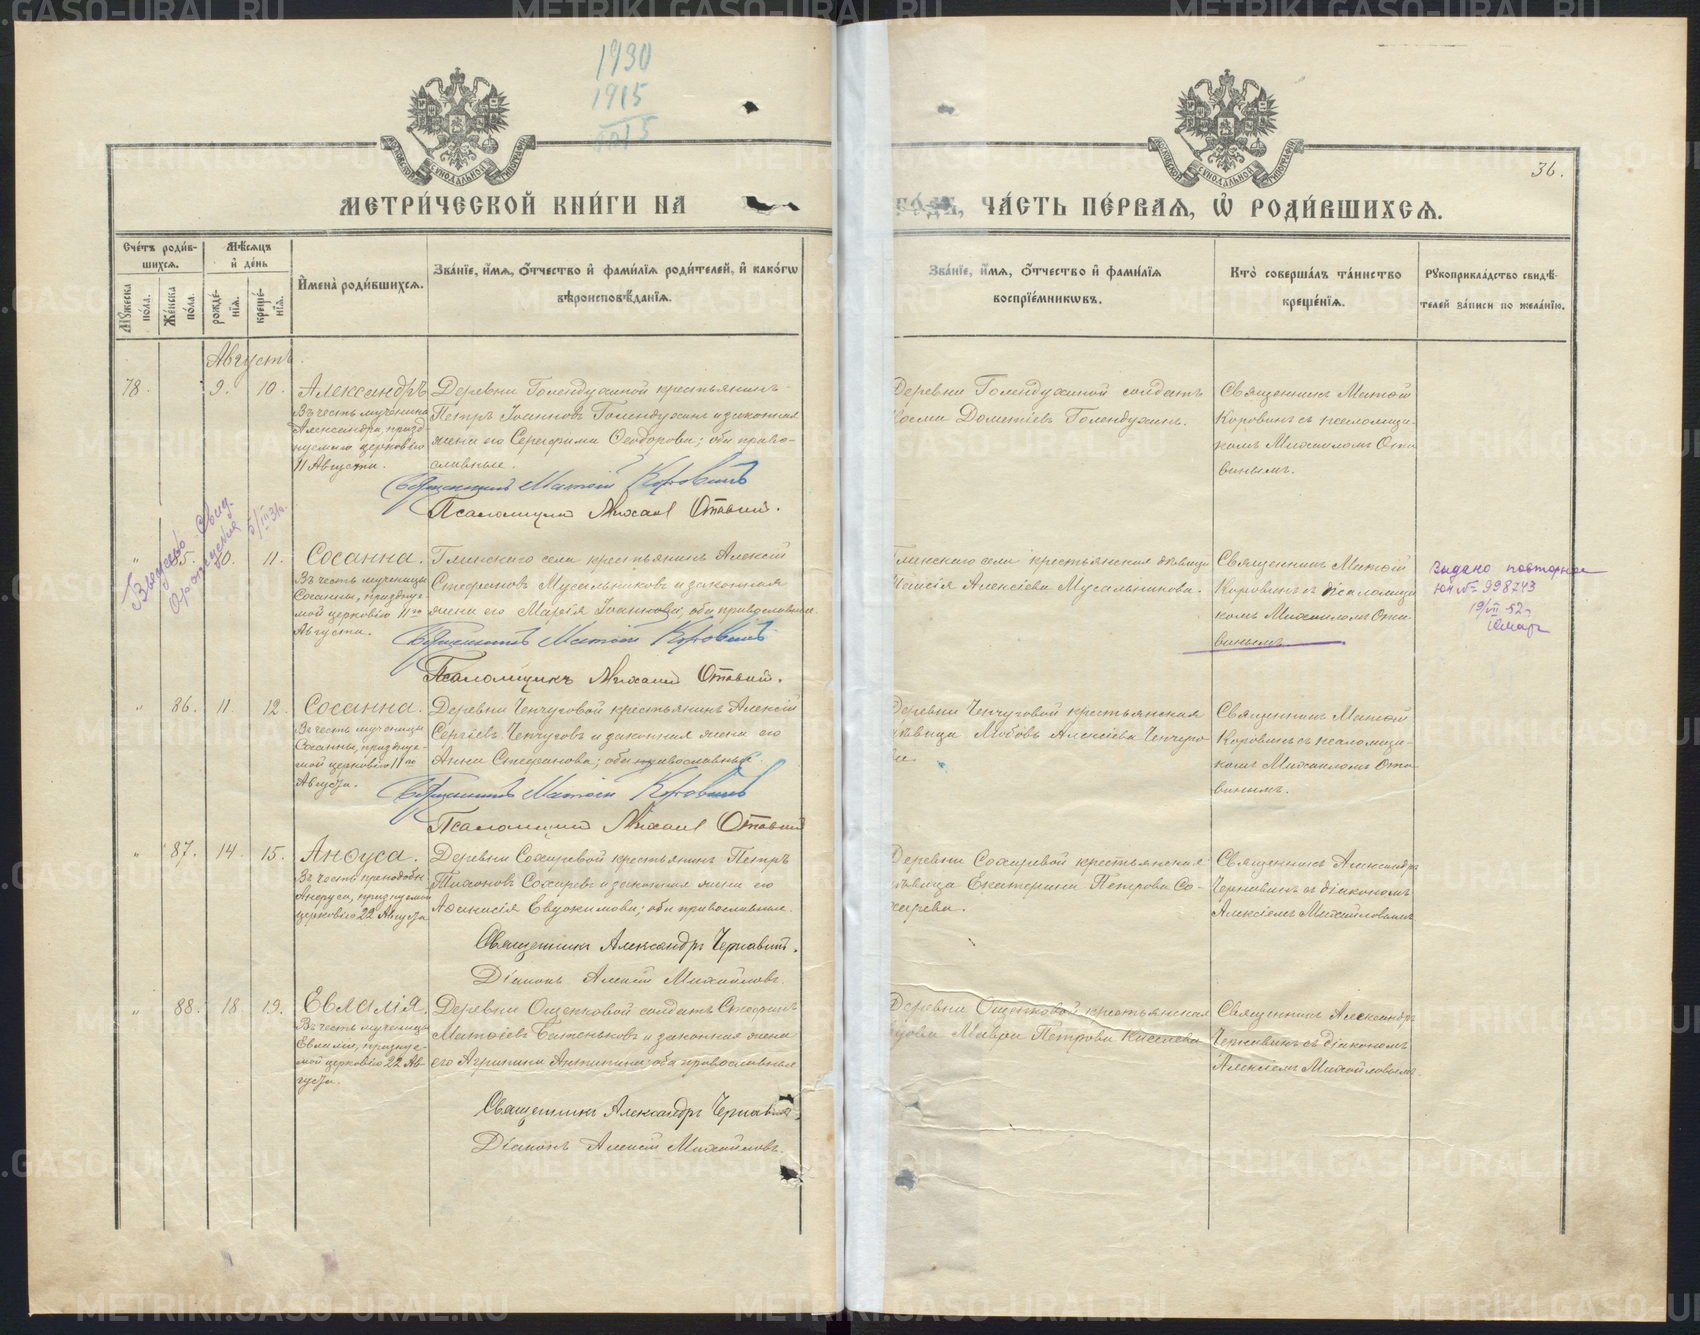 1930
1915
36.
МЕТРИ́ЧЕСКОЙ КНИ́ГИ НА
ГО́ДЪ, ЧА́СТЬ ПЕ́РВАЯ, Ѡ РОДИ́ВШИХСЯ.
Сче́тъ роди́в-
шихся.
Мѣ́сяцъ
и҆ де́нь
Му́жеска по́ла.
Же́нска по́ла.
рожде́нїя.
креще́нїя.
И҆мена̀ роди́вшихся.
Зва́нїе, и҆́мя, о҆́тчество и҆ фами́лїя роди́телей, и҆ како́гѡ
вѣроисповѣ́данїя.
Зва́нїе, и҆́мя, о҆́тчество и҆ фами́лїя
воспрїе́мникѡвъ.
Кто̀ соверша́лъ та́инство
креще́нїя.
Рукоприкла́дство свидѣ́-
телей за́писи по жела́нїю.
Августъ.
78. 9. 10. Александръ
Въ честь мученика
Александра, празд
нуемаго церковію
11 Августа.
Деревни Голендухиной крестьянинъ
Петръ Іоанновъ Голендухинъ и законная
жена его Серафима Ѳеодорова; оба право-
славные.
Священникъ Матѳій Коровинъ
Псаломщикъ Михаил Отавин.
Деревни Голендухиной солдатъ
Косма Дометіевъ Голендухинъ.
Священникъ Матѳій
Коровинъ съ псаломщи-
комъ Михаиломъ Ота
винымъ.
" 85. 10. 11. Сосанна.
Въ честь мученицы
Сосанны, празднуе-
мой церковію 11го
Августа.
Глинскаго села крестьянинъ Алексій
Стефановъ Мусальниковъ и законная
жена его Марія Іоаннова; оба православные.
Священникъ Матѳій Коровинъ
Псаломщикъ Михаил Отавин.
Глинскаго села крестьянская дѣвица
Таисія Алексіева Мусальникова.
Священникъ Матѳій
Коровинъ съ псаломщи
комъ Михаиломъ Ота-
винымъ.
Выдано Свид.
о рождении
5/III 31г.
Выдано повторное
ЮА № 998743
19/VII 52г
" 86. 11. 12. Сосанна.
Въ честь мученицы
Сосанны, празднуе-
мой церковію 11го
Августа.
Деревни Ченчуговой крестьянинъ Алексій
Сергіевъ Ченчуговъ и законная жена его
Анна Стефанова; оба православные.
Священникъ Матѳій Коровинъ
Псаломщик Михаил Отавин
Деревни Ченчуговой крестьянская
дѣвица Любовь Алексіева Ченчуго-
ва.
Священникъ Матѳій
Коровинъ съ псаломщи-
комъ Михаиломъ Ота-
винымъ.
" 87. 14. 15. Анѳуса.
Въ честь преподобн.
Анѳусы, празднуемой
церковію 22 Августа
Деревни Сохаревой крестьянинъ Петръ
Тихоновъ Сохаревъ и законная жена его
Аѳанасія Евдокимова; оба православные.
Священникъ Александръ Чернавинъ.
Діаконъ Алексій Михайловъ.
Деревни Сохаревой крестьянская
дѣвица Екатерина Петрова Со-
харева.
Священникъ Александръ
Чернавинъ съ діакономъ
Алексіемъ Михайловымъ
" 88. 18. 19. Евлалія.
Въ честь мученицы
Евлаліи, празднуе-
мой церковію 22 Ав-
густа.
Деревни Ощепковой солдатъ Стефанъ
Матѳіевъ Батеньковъ и законная жена
его Агрипина Антипина; оба православные
Священникъ Александръ Чернавин.
Діаконъ Алексій Михайловъ.
Деревни Ощепковой крестьянская
вдова Мавра Петрова Киселева
Священникъ Александръ
Чернавинъ съ діакономъ
Алексіемъ Михайловымъ.
METRIKI.GASO-URAL.RU